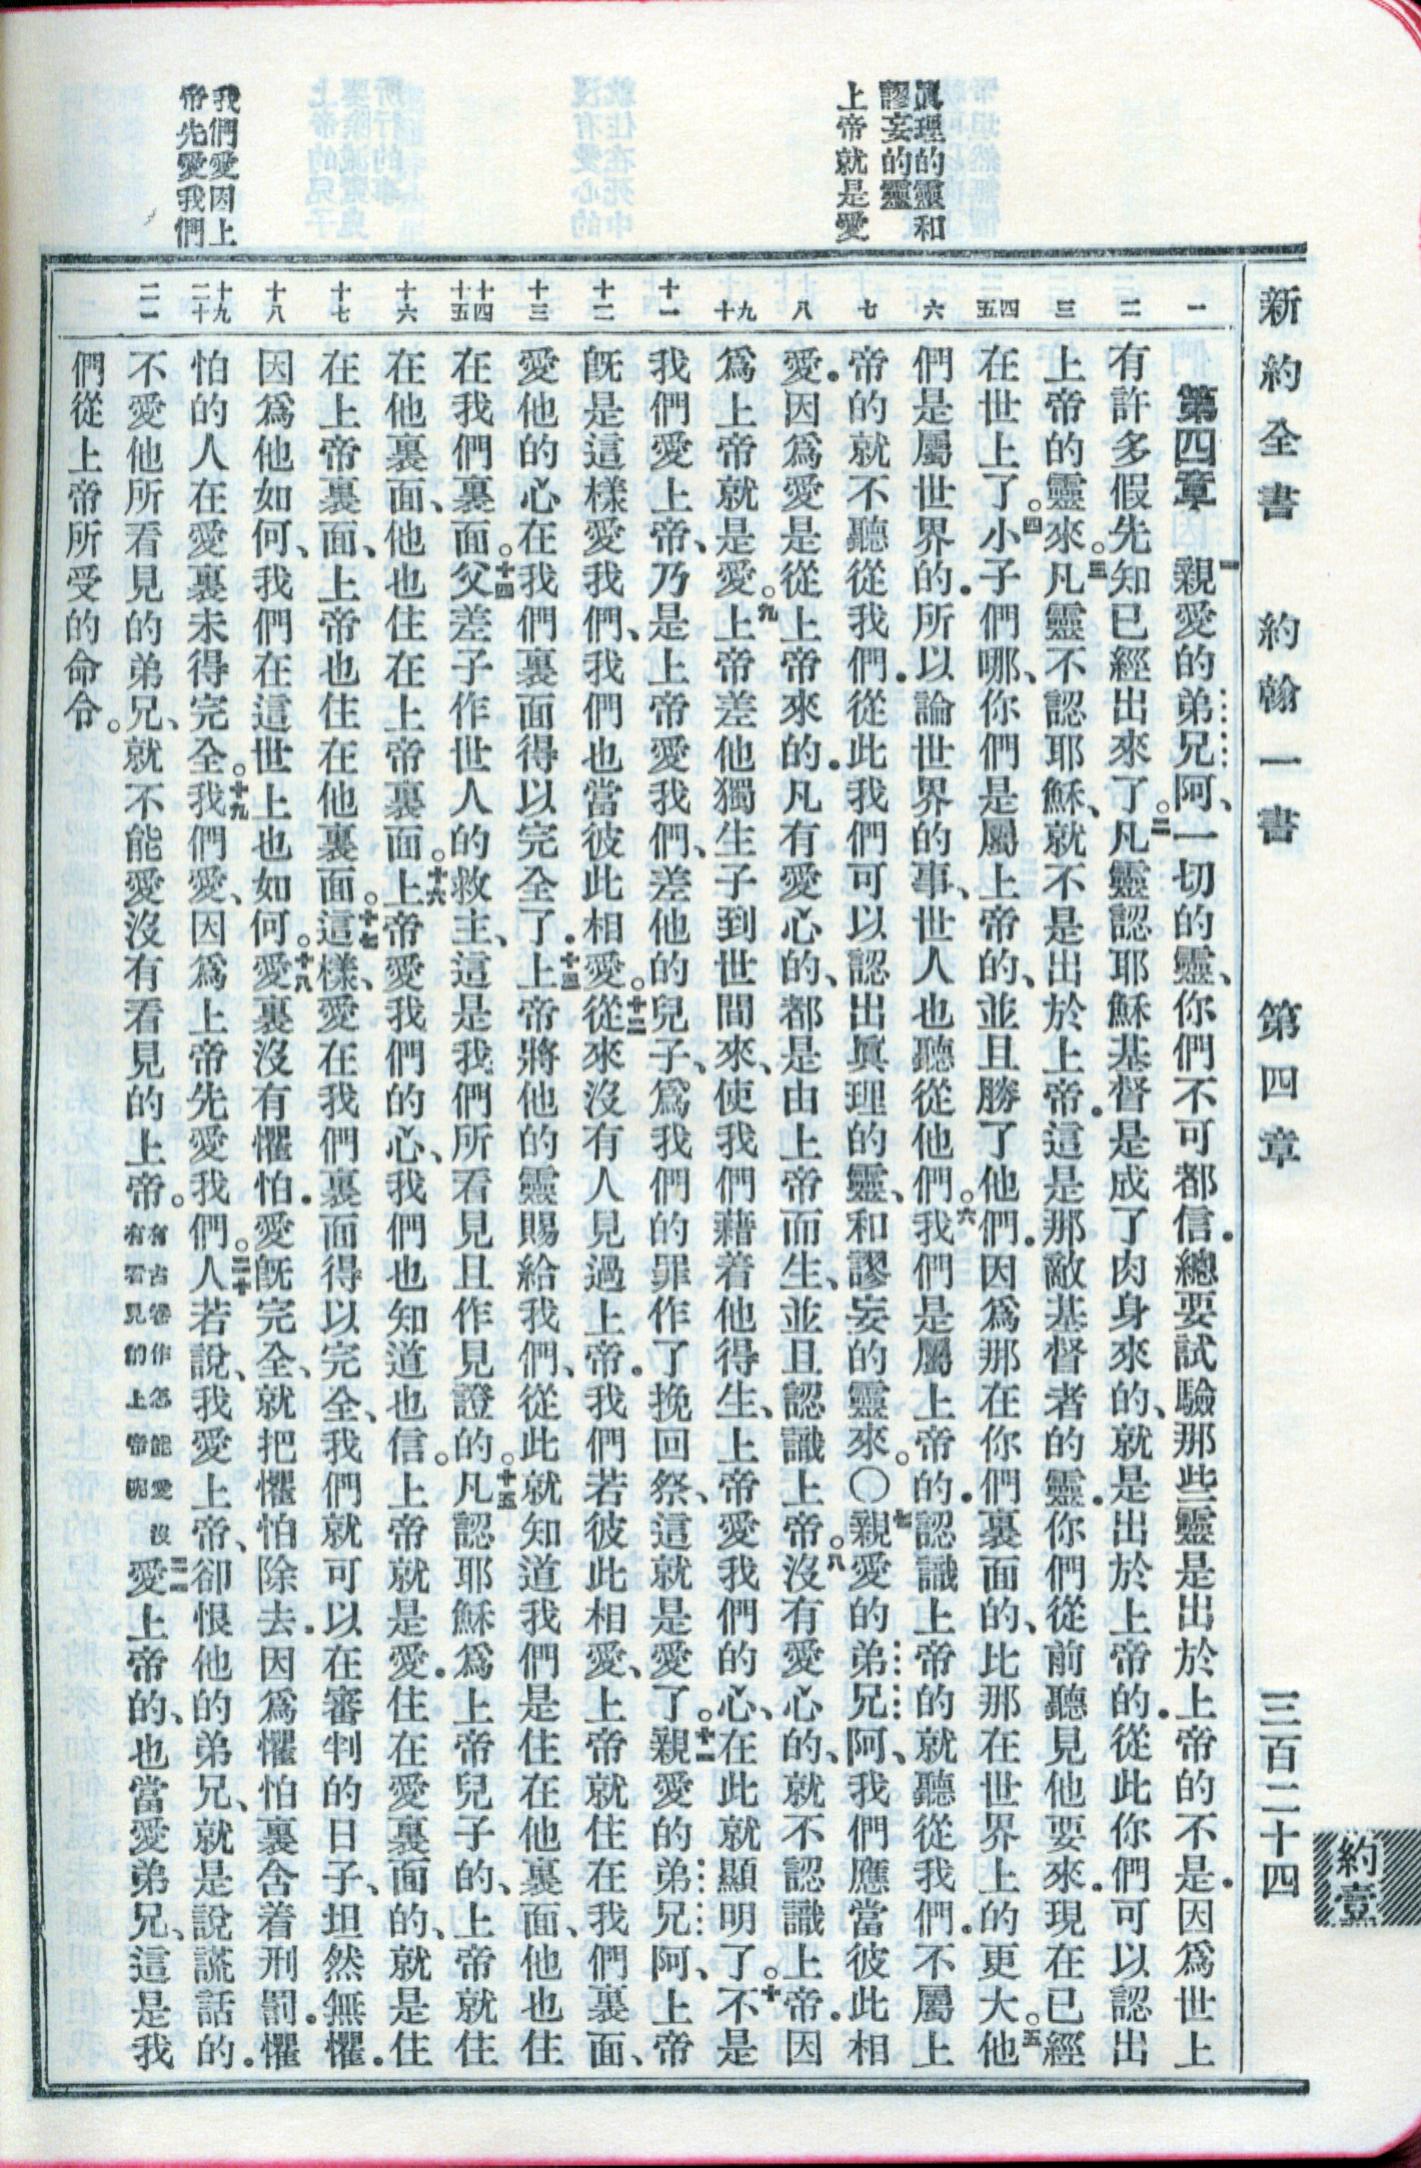 新約全書 約翰一書 第四章 三百二十四
約壹
眞理的靈和
謬妄的靈
上帝就是愛
我們愛因上
帝先愛我們
一
二
三
四
五
六
七
八
九
十
十一
十二
十三
十四
十五
十六
十七
十八
十九
二十
二一
第四章 一親愛的弟兄阿、一切的靈、你們不可都信．總要試驗那些靈是出於上帝的不是．因爲世上
有許多假先知已經出來了。二凡靈認耶穌基督是成了肉身來的、就是出於上帝的．從此你們可以認出
上帝的靈來。三凡靈不認耶穌、就不是出於上帝．這是那敵基督者的靈．你們從前聽見他要來．現在已經
在世上了。四小子們哪、你們是屬上帝的、並且勝了他們．因爲那在你們裏面的、比那在世界上的更大。五他
們是屬世界的．所以論世界的事、世人也聽從他們。六我們是屬上帝的．認識上帝的就聽從我們．不屬上
帝的就不聽從我們．從此我們可以認出眞理的靈、和謬妄的靈來。〇七親愛的弟兄阿、我們應當彼此相
愛．因爲愛是從上帝來的．凡有愛心的、都是由上帝而生、並且認識上帝。八沒有愛心的、就不認識上帝．因
爲上帝就是愛。九上帝差他獨生子到世間來、使我們藉着他得生、上帝愛我們的心、在此就顯明了。十不是
我們愛上帝、乃是上帝愛我們、差他的兒子、爲我們的罪作了挽回祭、這就是愛了。十一親愛的弟兄阿、上帝
旣是這樣愛我們、我們也當彼此相愛。十二從來沒有人見過上帝．我們若彼此相愛、上帝就住在我們裏面、
愛他的心在我們裏面得以完全了．十三上帝將他的靈賜給我們、從此就知道我們是住在他裏面、他也住
在我們裏面。十四父差子作世人的救主、這是我們所看見且作見證的。十五凡認耶穌爲上帝兒子的、上帝就住
在他裏面、他也住在上帝裏面。十六上帝愛我們的心、我們也知道也信。上帝就是愛．住在愛裏面的、就是住
在上帝裏面、上帝也住在他裏面。十七這樣、愛在我們裏面得以完全、我們就可以在審判的日子、坦然無懼．
因爲他如何、我們在這世上也如何。十八愛裏沒有懼怕．愛旣完全、就把懼怕除去．因爲懼怕裏含着刑罰．懼
怕的人在愛裏未得完全。十九我們愛、因爲上帝先愛我們。二十人若說、我愛上帝、卻恨他的弟兄、就是說謊話的．
不愛他所看見的弟兄、就不能愛沒有看見的上帝。有古卷作怎能愛沒有看見的上帝呢二一愛上帝的、也當愛弟兄、這是我
們從上帝所受的命令。